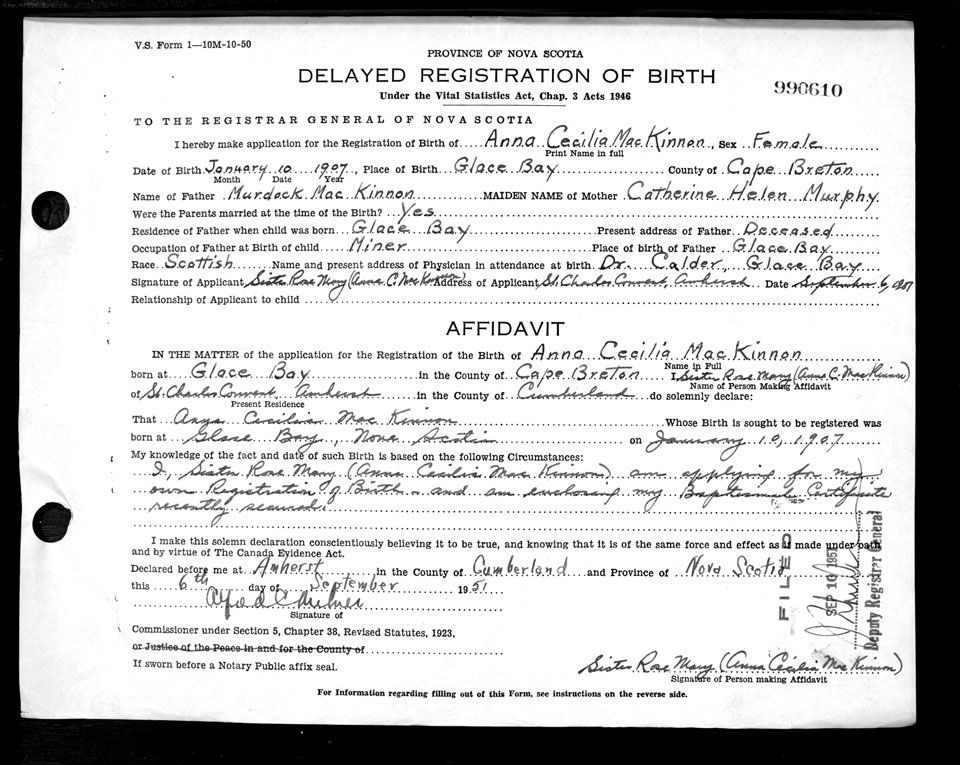 V.S. Form 1—10M-10-50
PROVINCE OF NOVA SCOTIA
DELAYED REGISTRATION OF BIRTH
990610
Under the Vital Statistics Act, Chap. 3 Acts 1946
TO THE REGISTRAR GENERAL OF NOVA SCOTIA
I hereby make application for the Registration of Birth of Anna Cecilia Mac Kinnon, Sex Female
Print Name in full
Date of Birth January 10 1907, Place of Birth Glace Bay County of Cape Breton
Month Date Year
Name of Father Murdock Mac Kinnon MAIDEN NAME of Mother Catherine Helen Murphy
Were the Parents married at the time of the Birth? Yes
Residence of Father when child was born Glace Bay Present address of Father Deceased
Occupation of Father at Birth of child Miner Place of birth of Father Glace Bay
Race Scottish Name and present address of Physician in attendance at birth Dr. Calder, Glace Bay
Signature of Applicant Sister Rose Mary (Anna C. Mac Kinnon) Address of Applicant St. Charles Convent, Amherst Date September 6,
Relationship of Applicant to child
AFFIDAVIT
IN THE MATTER of the application for the Registration of the Birth of Anna Cecilia Mac Kinnon
Name in Full
born at Glace Bay in the County of Cape Breton I, Sister Rose Mary (Anna C. Mac Kinnon)
Name of Person Making Affidavit
of St. Charles Convent, Amherst in the County of Cumberland do solemnly declare:
Present Residence
That Anna Cecilia Mac Kinnon Whose Birth is sought to be registered was
born at Glace Bay, Nova Scotia on January 10, 1907.
My knowledge of the fact and date of such Birth is based on the following Circumstances:
I, Sister Rose Mary (Anna Cecilia Mac Kinnon) am applying for my
own Registration of Birth and am enclosing my Baptismal Certificate
recently secured.
I make this solemn declaration conscientiously believing it to be true, and knowing that it is of the same force and effect as if made under oath
and by virtue of The Canada Evidence Act.
Declared before me at Amherst in the County of Cumberland and Province of Nova Scotia
this 6th day of September 1951
Signature of
Commissioner under Section 5, Chapter 38, Revised Statutes, 1923,
or Justice of the Peace in and for the County of
If sworn before a Notary Public affix seal.
FILED
SEP 10 195
Deputy Registrar General
Sister Rose Mary (Anna Cecilia Mac Kinnon)
Signature of Person making Affidavit
For Information regarding filling out of this Form, see instructions on the reverse side.